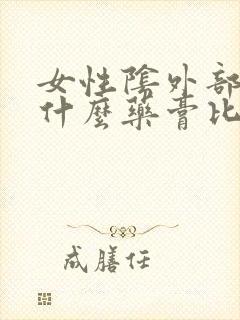 女性陰外部
什麼藥膏比
成膳任